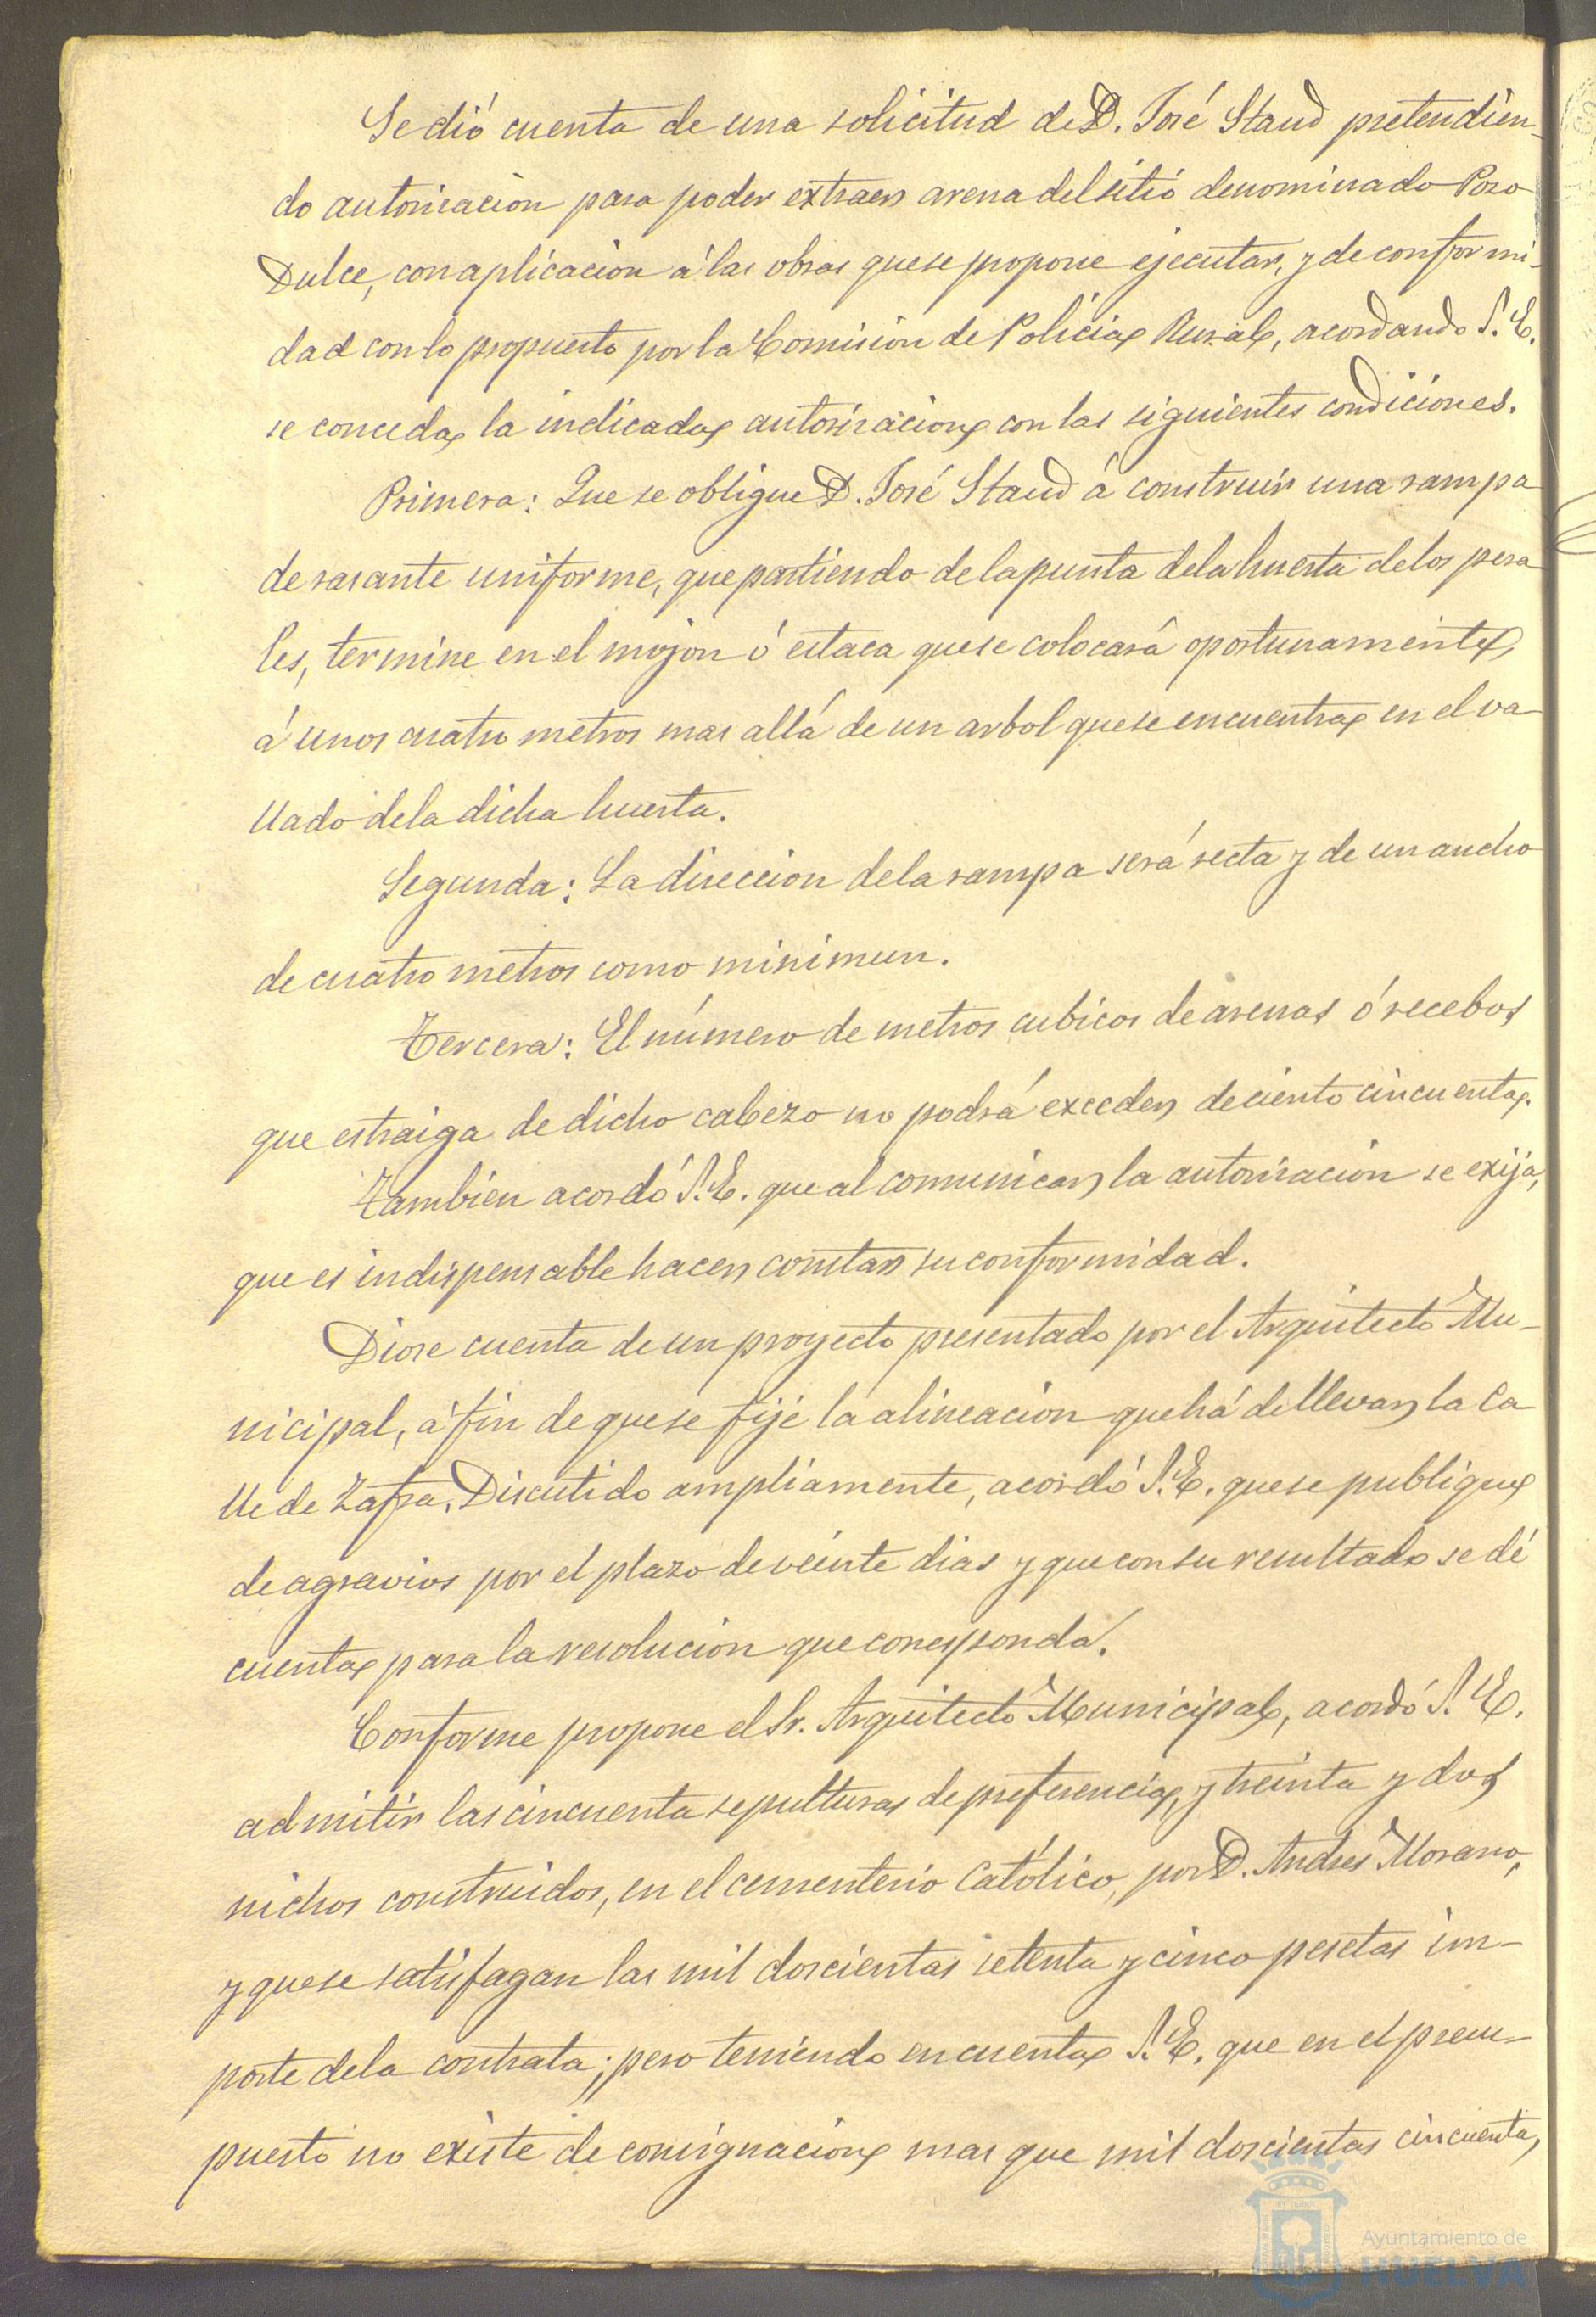 Se dió cuenta de una solicitud de D. José Staud pretendien-
do autorización para poder extraer arena del sitió denominado Pozo
Dulce, con aplicacion á las obras que se propone ejecutar, y de conformi-
dad con lo propuesto por la Comision de Policia Rural, acordando S. E.
se conceda la indicada autorización con las siguientes condiciones.
Primera: Que se obligue D. José Staud á construir una rampa
de rasante uniforme, que partiendo de la punta de la huerta de los pera
les, termine en el mojon ó estaca que se colocará oportunamente,
á unos cuatro metros mas allá de un arbol que se encuentra en el va
llado de la dicha huerta.
Segunda: La direccion de la rampa será recta y de un ancho
de cuatro metros como minimun.
Tercera: El número de metros cubicos de arenas ó recebos
que estraiga de dicho cabezo no podrá exceder de ciento cincuenta.
Tambien acordó S. E. que al comunicar la autorizacion se exija,
que es indispensable hacer constar su conformidad.
Diose cuenta de un proyecto presentado por el Arquitecto Mu-
nicipal, á fin de que se fije la alineacion que há de llevar la Ca
lle de Zafra. Discutido ampliamente, acordó S. E. que se publique
de agravios por el plazo de veinte dias y que con su resultado se dé
cuenta para la resolucion que coresponda.
Conforme propone el Sr. Arquitecto Municipal, acordó S. E.
admitir las cincuenta sepulturas de preferencia, y treinta y dos
nichos construidos, en el cementerio Católico, por D. Andrés Morano,
y que se satisfagan las mil doscientas setenta y cinco pesetas im-
porte de la contrata; pero teniendo en cuenta S. E. que en el presu-
puesto no existe de consignacion mas que mil doscientas cincuenta,
Ayuntamiento de
HUELVA